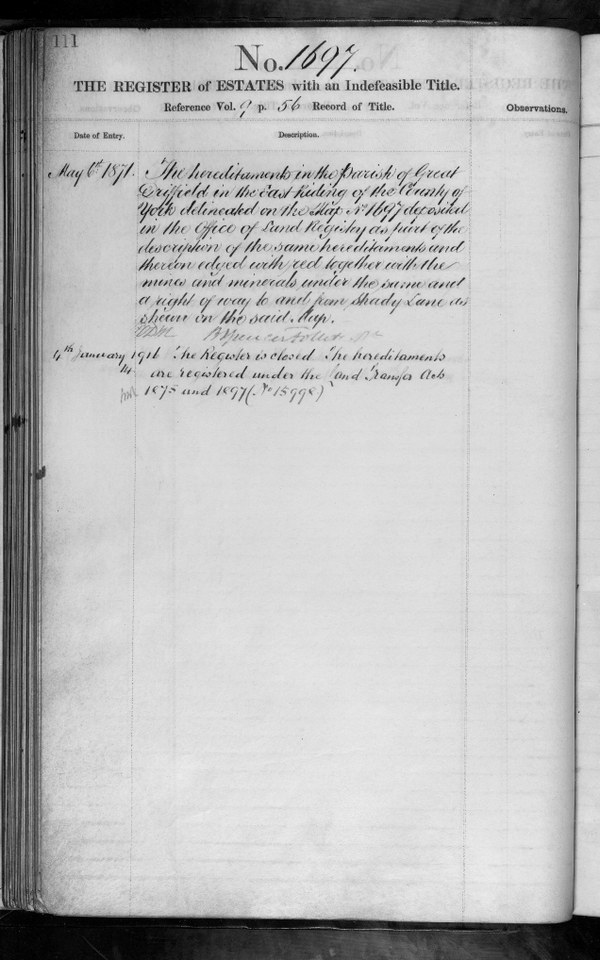 111
No. 1697.
THE REGISTER of ESTATES with an Indefeasible Title.
Reference Vol. 9 p. 56 Record of Title.
Observations.
Date of Entry.
Description.
May 6th 1871. The hereditaments in the Parish of Great
Driffield in the East Riding of the County of
York delineated on the Map No 1697 deposited
in the Office of Land Registry as part of the
description of the same hereditaments and
thereon edged with red together with the
mines and minerals under the same and
a right of way to and from Shady Lane as
shewn on the said Map.
Brent Spencer Follett
4th January 1911 The Register is closed The hereditaments
are registered under the Land Transfer Acts
1875 and 1897 (No 15998)